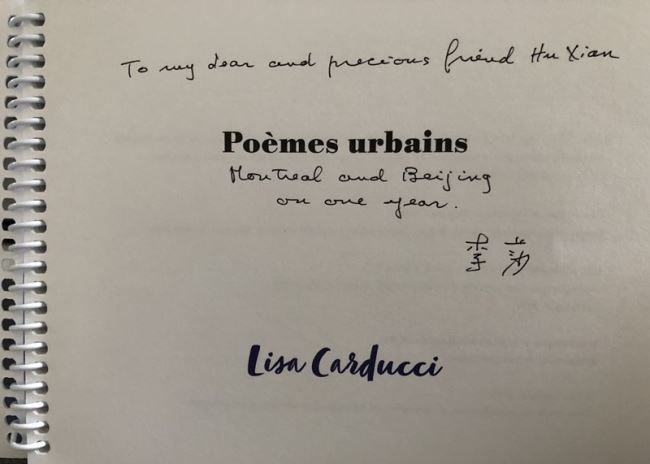 To my dear and precious friend Hu Xian
Poèmes urbains
Montreal and Beijing
on one year.
李莎
Lisa Carducci